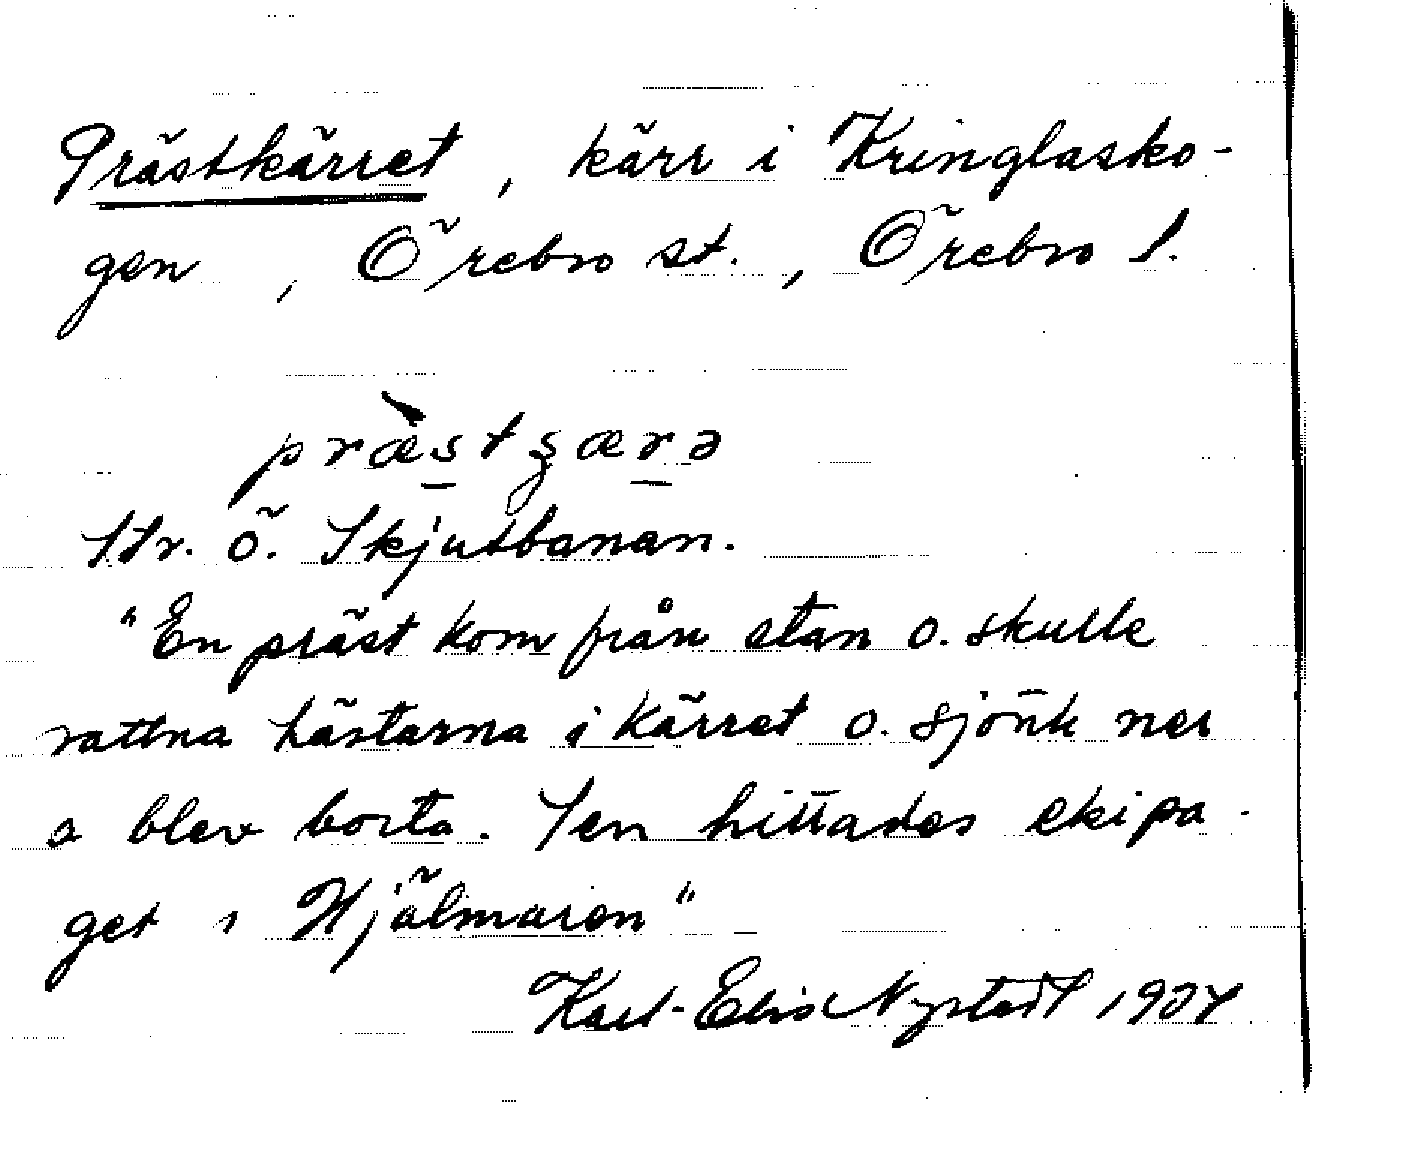 Prästkärret, kärr i Kringlasko-
gen, Örebro st., Örebro l.
præ̀stʂærə
Str. ö. Skjutbanan.
"En präst kom från stan o. skulle
vattna hästarna i kärret o. sjönk ner
o blev borta. Sen hittades ekipa-
get i Hjälmaren"
Karl-Elis Nystedt